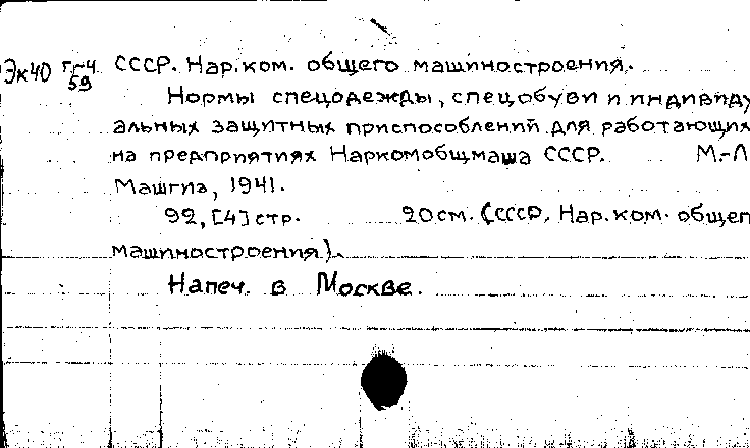 Эк40 Гг-4 СССР. Нар.ком. общего машиностроения.
59
Нормы спецодежды, спецобуви и индивиду
альных защитных приспособлений для работающих
на предприятиях Наркомобщмаша СССР. М.-Л
Машгиз, 1941.
92, [4] стр. 20см. (СССР. Нар.ком. общег
машиностроения).
Напеч. в Москве.